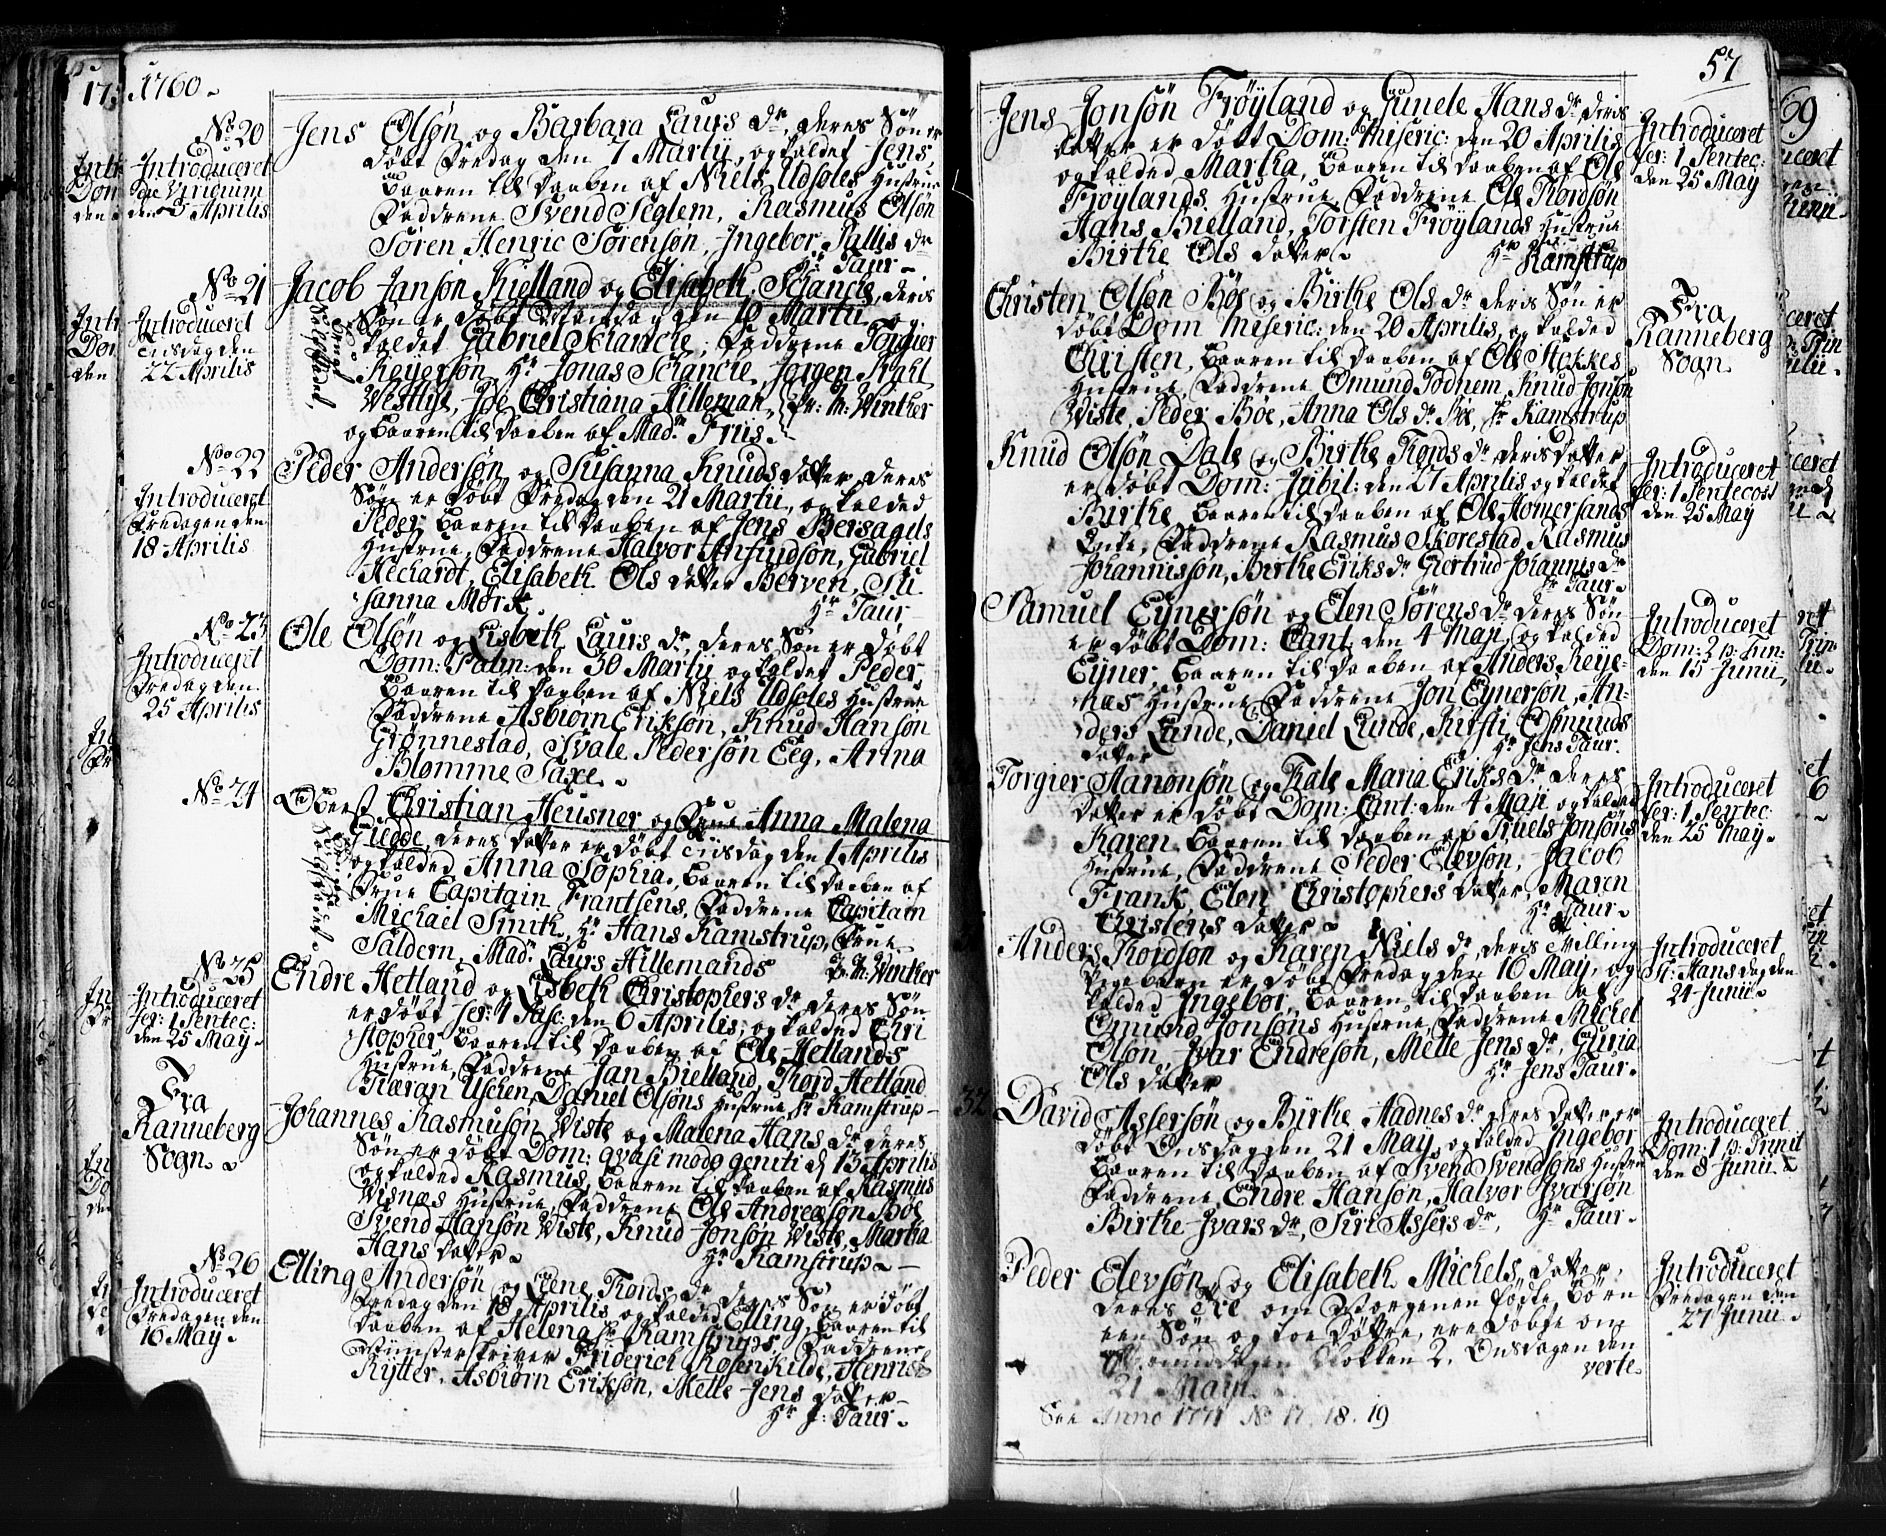 1760.
No 20
Introduceret
Die Viridium
den 5 Aprilis
Jens Olsøn og Barbara Laurs dr, deres Søn er
døbt Fredag den 7 Martii, og kaldet Jens,
Baaren til daaben af Niels Udsoles Hustrue
Faddrene Svend Seglem, Rasmus Olsøn
Søren Henric Sørensøn, Ingebor Pallis dr
Hr Taur
No 21
Introduceret
Tiisdag den
22 Aprilis
Jacob Jansøn Kielland og Elisabeth Schancke, deris
Søn er døbt Mandag den 10 Martii og
kaldet Gabriel Schancke, Faddrene Torgier
Reijersøn, Hr Jonas Schancke, Jørgen Kahl
Westlye, Joe Christiana Hilleman,
Pr: M: Winther
og baaren til daaben af Madm Friis.
No 22
Introduceret
Fredagen den
18 Aprilis
Peder Andersøn og Susanna Knuds datter deres
Søn er døbt Fredag den 21 Martii, og kalded
Peder, baaren til daaben af Jens Bersagels
Hustrue, Faddrene Halvor Anfindsøn, Gabriel
Hechardt, Elisabeth Ols datter Berven, Su
sanna Mørk
Hr Taur
No 23
Introduceret
Fredag den
25 Aprilis
Ole Olsøn og Lisbeth Laurs dr, deres Søn er døbt
Dom: Palm: den 30 Martii og kaldet Peder,
Baaren til daaben af Niels Udsoles Hustrue
Faddrene Asbiørn Eriksøn, Knud Hansøn
Grønnestad, Svale Pedersøn Eeg, Anna
Blømme Saxe.
No 24
Oberst Christian Heusner og Frue Anna Malena
Giedde, deres datter er døbt Tiisdag den 1 Aprilis
og kalded Anna Sophia, baaren til daaben af
Frue Capitain Frantsens, Faddrene Capitain
Michael Smith, Hr Hans Kamstrup, Frue
Saldern, Madm Laurs Hillemands
Pr: M: Winther
No 25
Introduceret
Fer: 1 Pentec:
den 25 May
Endre Hetland og Lisbeth Christophers dr deres Søn
er døbt Fer: 1 Pasc: den 6 Aprilis, og kalded Chri
stopher baaren til daaben af Ole Hetlands
Hustrue, Faddrene Jan Bielland, Tord Hetland
Tiæran Uscken, Daniel Olsøns Hustrue, Hr Kamstrup
Fra
Ranneberg
Sogn.
Johannes Rasmusøn Viste og Malena Hans dr deres
Søn er døbt Dom: qvasi modo geniti d 13 Aprilis
og kalded Rasmus, baaren til daaben af Rasmus
Visnæs Hustrue, Faddrene Ole Andreæsøn Bøe
Svend Hansøn Viste, Knud Jonsøn Viste, Martha
Hans datter.
Hr Kamstrup
No 26
Introduceret
Fredagen den
16 May
Elling Andersøn og Lene Tords dr deres Søn er døbt
Fredag den 18 Aprilis og kalded Elling, baaren til
daaben af Helena Hr Kamstrups, Faddrene
Friderich Rosenkilde, Henrich
Rytter, Asbiørn Eriksøn, Mette Jens datter
Hr J: Taur
57
Jens Jonsøn Frøyland og Gunele Hans dr, deris
datter er døbt Dom: Miseric: den 20 Aprilis
og kalded Martha, baaren til daaben af Ole
Frøylands Hustrue, Faddrene Ole Tordsøn
Hans Bielland, Torsten Frøylands Hustrue
Birthe Ols datter
Hr Kamstrup
Introduceret
Fer: 1 Pentec:
den 25 May
Christen Olsøn Bøe og Birthe Ols dr deris Søn er
døbt Dom Miseric: den 20 Aprilis, og kalded
Christen, baaren til daaben af Ole Stokkes
Hustrue, Faddrene Omund Todnem, Knud Jonsøn
Viste, Peder Bøe, Anna Ols dr Bøe, Hr Kamstrup
Fra
Ranneberg
Sogn.
Knud Olsøn Dale og Birthe Tords dr deris datter
er døbt Dom: Jubil: den 27 Aprilis og kaldet
Birthe baaren til daaben af Ole Homersands
Enke, Faddrene Rasmus Skorestad Rasmus
Johannissøn, Birthe Eriks dr Giertrud Johannis dr
Hr Taur
Introduceret
Fer: 1 Pentecost
den 25 May
Samuel Eijnersøn og Elen Sørens dr deres Søn
er døbt Dom: Cant: den 4 Maji, og kalded
Eijner, baaren til daaben af Anders Reije-
næs Hustrue, Faddrene Jon Eijnersøn, An-
ders Lunde, Daniel Lunde, Kirsti Osmunds
datter
Hr Jens Taur.
Introduceret
Dom: 2 p: Trin:
den 15 Junii
Torgier Aanonsøn og Kale Maria Eriks dr deres
datter er døbt Dom: Cant: den 4 Maji og kalded
Karen, baaren til daaben af Truels Jonsøns
Hustrue, Faddrene Peder Elevsøn, Jacob
Frank, Elen Christophers datter, Maren
Christens datter
Hr Taur
Introduceret
Fer: 1 Pentec:
den 25 May
Anders Tordsøn og Karen Niels dr, deris Tvilling
Pigebarn er døbt Fredag den 16 May, og
kalded Ingebor, baaren til daaben af
Omund Jonsøns Hustrue, Faddrene Michel
Olsøn, Ivar Endresøn, Mette Jens dr, Guria
Ols datter
Hr Jens Taur
Introduceret
St: Hans dag den
24 Junii
32
David Assersøn og Birthe Aadnes dr deres datter er
døbt Onsdagen 21 May, og kalded Ingebor
baaren til daaben af Svend Svendsøns Hustrue
Faddrene Endre Hansøn, Halvor Ivarsøn
Birthe Ivars dr, Siri Assers dr,
Hr Taur
Introduceret
Dom: 1 p: Trinit
den 8 Junii
Peder Elevsøn og Elisabeth Michels datter,
deres Tre om Morgenen fødte Børn
een Søn og toe Døttre, ere døbte om
Klokken 2. Onsdagen den
21 Maji
verte
Introduceret
Fredagen den
27 Junii
See Anno 1771 No 17. 18. 19